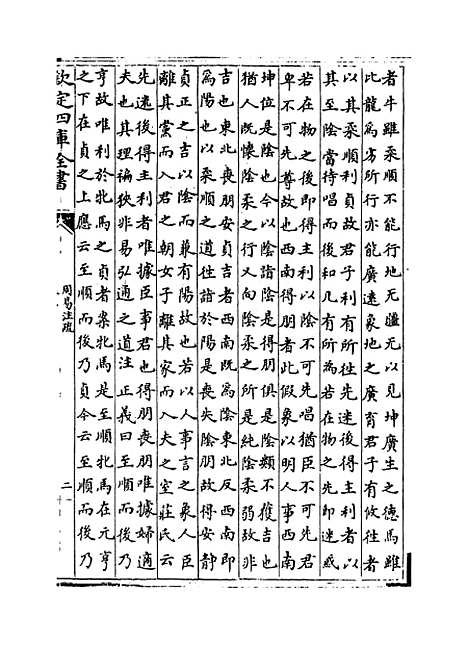 者牛雖柔順不能行地无疆无以見坤廣生之德馬雖
比龍為劣所行亦能廣遠象地之廣育君子有攸往者
以其柔順利貞故君子利有所往先迷後得主利者以
其至陰當待唱而後和凡有所為若在物之先即迷惑
若在物之後即得主利以陰不可先唱猶臣不可先君
卑不可先尊故也西南得朋者此假象以明人事西南
坤位是陰也今以陰詣陰是得朋俱是陰類不獲吉也
猶人既懷陰柔之行又向陰柔之所是純陰柔弱故非
吉也東北喪朋安貞吉者西南既為陰東北反西南即
為陽也以柔順之道往詣於陽是喪失陰朋故得安靜
貞正之吉以陰而兼有陽故也若以人事言之象人臣
離其黨而入君之朝女子離其家而入夫之室莊氏云
先迷後得主利者唯據臣事君也得朋喪朋唯據婦適
夫也其理褊狹非易弘通之道注正義曰至順而後乃
亨故唯利於牝馬之貞者案牝馬是至順牝馬在元亨
之下在貞之上應云至順而後乃貞今云至順而後乃
欽定四庫全書
周易注疏
二